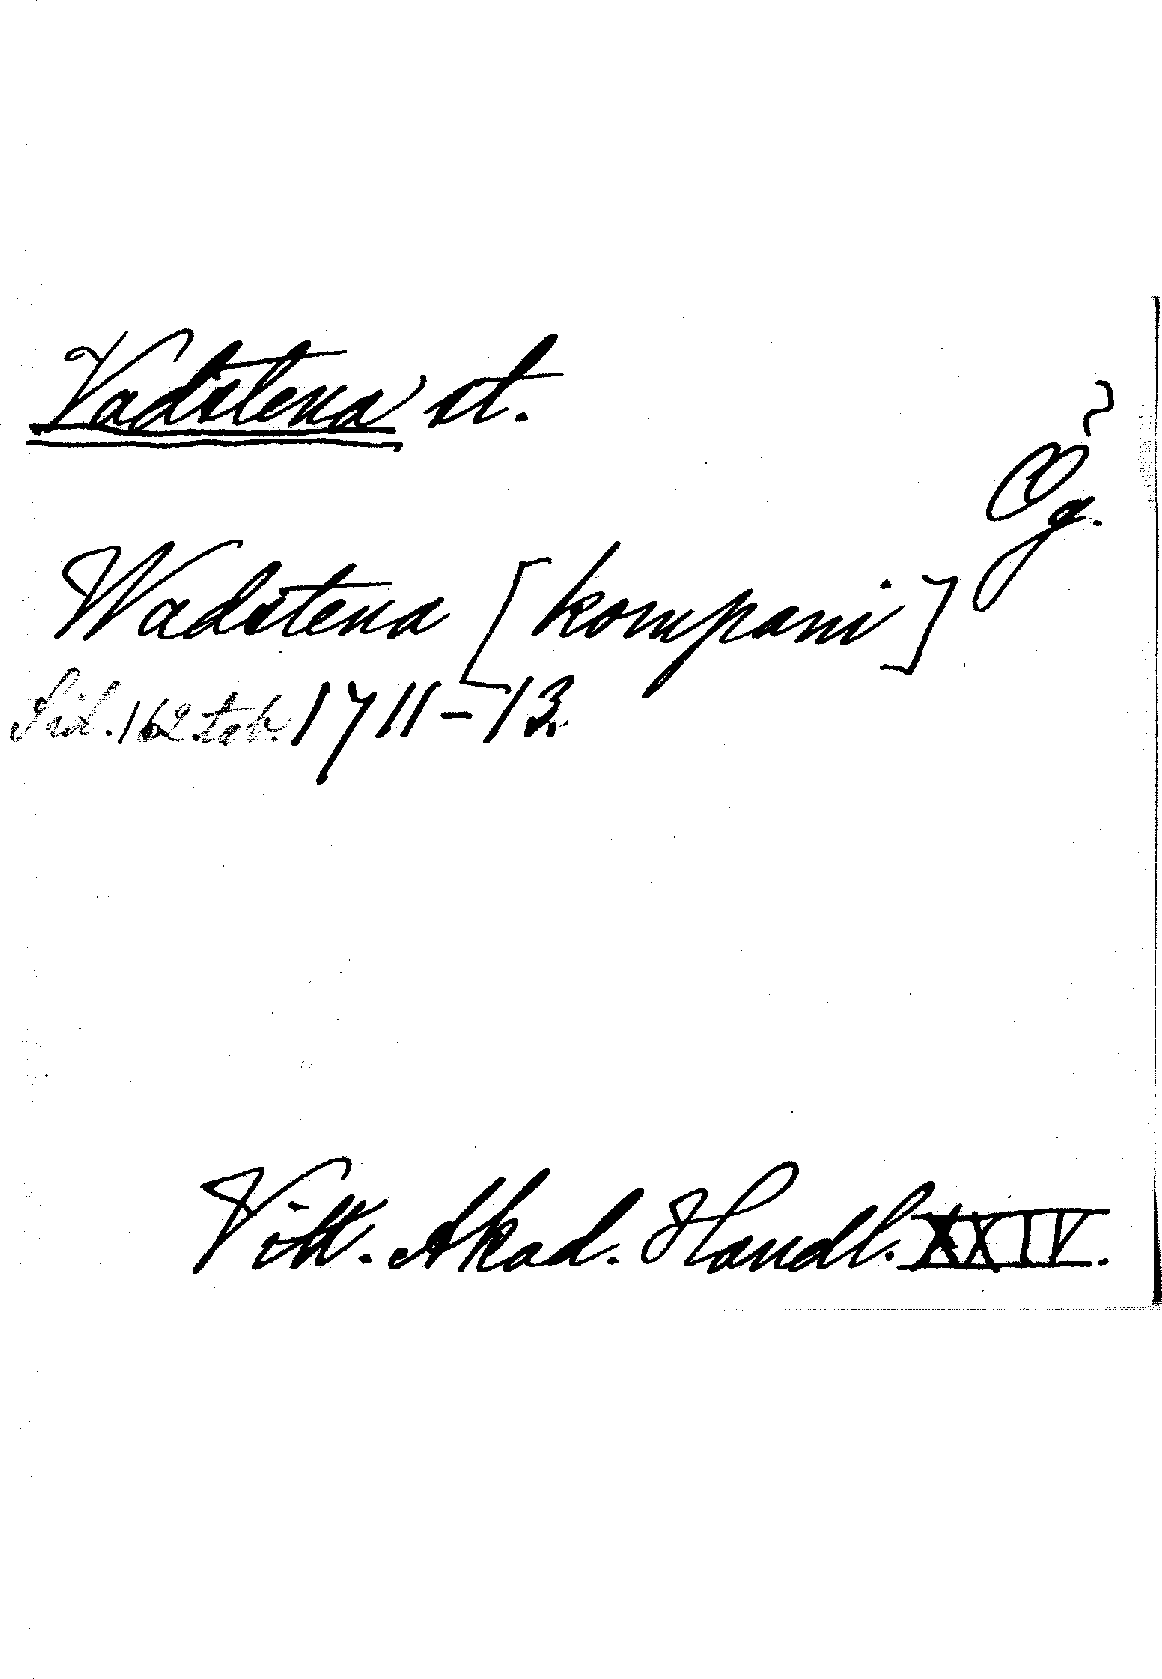 Vadstena st.
Ög.
Wadstena [kompani]
Sid. 162 tab. 1711-13.
Vitt. Akad. Handl. XXIV.